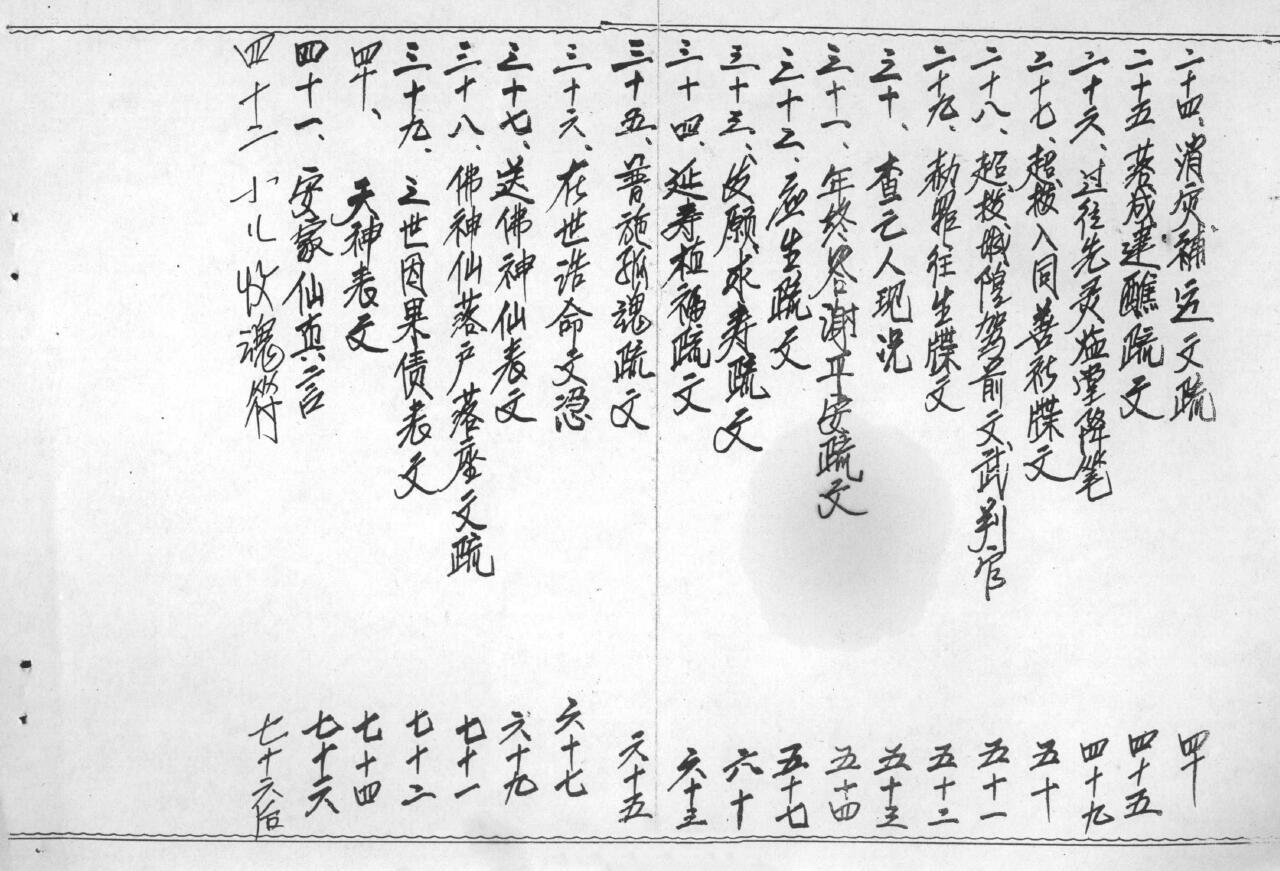 二十四、消灾補运文疏 四十
二十五 落成建醮疏文 四十五
二十六、过往先灵临堂降笔 四十九
二十七、超拔入同善社牒文 五十
二十八、超拔城隍驾前文武判官 五十一
二十九、赦罪往生牒文 五十二
三十、查亡人现况 五十三
三十一、年终答谢平安疏文 五十四
三十二、应生疏文 五十七
三十三、发愿求寿疏文 六十
三十四、延寿植福疏文 六十三
三十五、普施孤魂疏文 六十五
三十六、在世诰命文凭 六十七
三十七、送佛神仙表文 六十九
三十八、佛神仙落户落座文疏 七十一
三十九、三世因果债表文 七十二
四十、天神表文 七十四
四十一、安家仙真言 七十六
四十二 小儿收魂符 七十六后